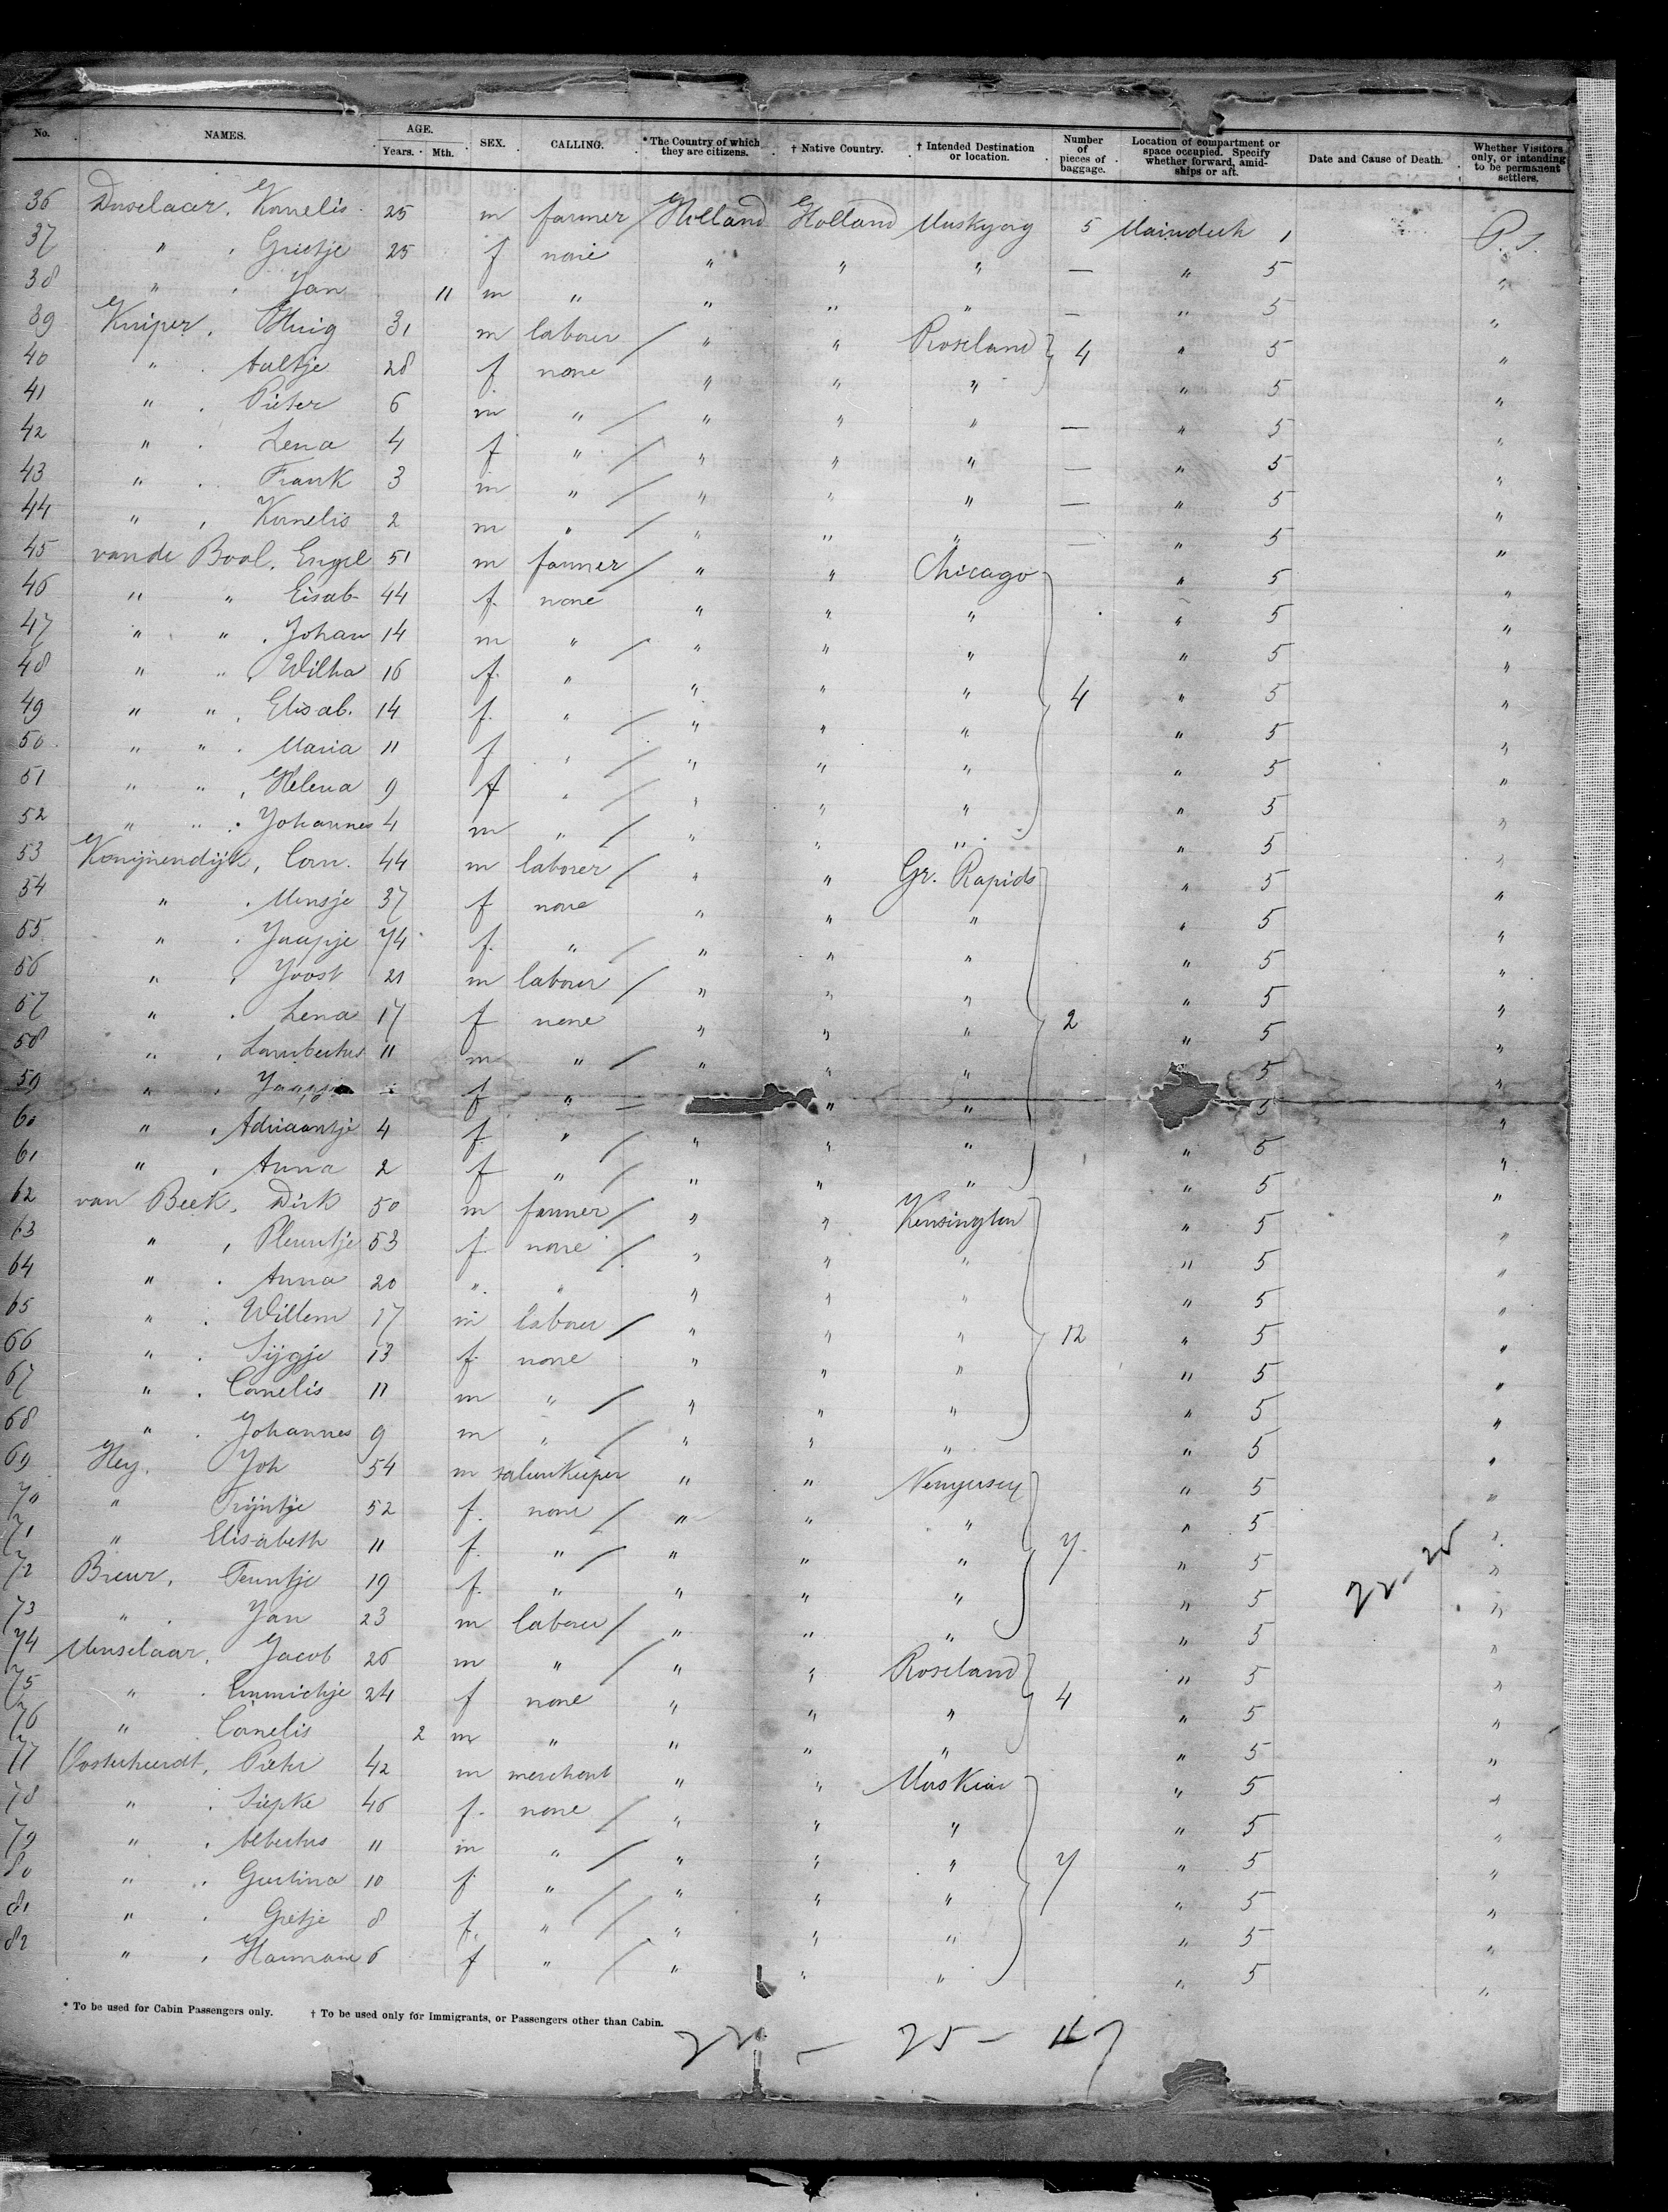 No. NAMES. AGE. Years. Mth. SEX. CALLING. * The Country of which they are citizens. † Native Country. † Intended Destination or location. Number of pieces of baggage. Location of compartment or space occupied. Specify whether forward, amidships or aft. Date and Cause of Death. Whether Visitors only, or intending to be permanent settlers.
36 Duselaar, Kornelis 25 m farmer / Holland Holland Muskyong 5 Maindeck 1 P. S.
37 " , Grietje 25 f none " " " — " 5 "
38 " , Jan 11 m " " " " — " 5 "
39 Kuiper, Huig 31 m labour / " " Roseland 4 " 5 "
40 " . Aaltje 28 f none " " " " 5 "
41 " . Pieter 6 m " / " " " — " 5 "
42 " . Lena 4 f " / " " " — " 5 "
43 " . Frank 3 m " / " " " — " 5 "
44 " , Kornelis 2 m " / " " " — " 5 "
45 van de Bool, Engel 51 m farmer / " " Chicago " 5 "
46 " " Eisab- 44 f. none " " " " 5 "
47 " " . Johan 14 m " / " " " " 5 "
48 " " , Wilha 16 f. " " " " 4 " 5 "
49 " " , Elisab. 14 f. " / " " " " 5 "
50 " " . Maria 11 f " / " " " " 5 "
51 " " , Helena 9 f " / " " " " 5 "
52 " " . Johannes 4 m " / " " " " 5 "
53 Konijnendijk, Corn. 44 m laborer / " " Gr. Rapids " 5 "
54 " . Mensje 37 f none " " " " 5 "
55 " . Jaapje 74 f. " / " " " " 5 "
56 " , Joost 21 m labour / " " " " 5 "
57 " . Lena 17 f none " " " 2 " 5 "
58 " , Lambertus 11 m " / " " " 5 "
59 " , f " — " " 5 "
60 " , Adriaantje 4 f " / " " " " 5 "
61 " , Anna 2 f " / " " " " 5 "
62 van Beek, Dirk 50 m farmer / " " Kensington " 5 "
63 " , Pleuntje 53 f none / " " " " 5 "
64 " . Anna 20 " " " " " " 5 "
65 " . Willem 17 m labour / " " " 12 " 5 "
66 " . Sijgje 13 f. none " " " " 5 "
67 " . Cornelis 11 m " / " " " " 5 "
68 " . Johannes 9 m " / " " " " 5 "
69 Hey, Joh 54 m salunkeeper " " Newyersey " 5 "
70 " Trijntje 52 f. none / " " " " 5 "
71 " Elisabeth 11 f. " / " " " 7 " 5 "
72 Breur, Teuntje 19 f. " " " " " 5 "
73 " . Jan 23 m labour / " " " " 5 "
74 Menselaar, Jacob 26 m " / " " Roseland " 5 "
75 " . Emmichje 24 f none " " " 4 " 5 "
76 " Cornelis 2 m " " " " " 5 "
77 Oosterheerdt, Pieter 42 m merchent " " " 5 "
78 " . Siepke 46 f. none / " " " " 5 "
79 " . Albertus 11 m " / " " " 7 " 5 "
80 " . Geertina 10 f " / " " " " 5 "
81 " . Gretje 8 f. " / " " " " 5 "
82 " , Harmane 6 f " / " " " " 5 "
* To be used for Cabin Passengers only. † To be used only for Immigrants, or Passengers other than Cabin.
22 — 25 — 47